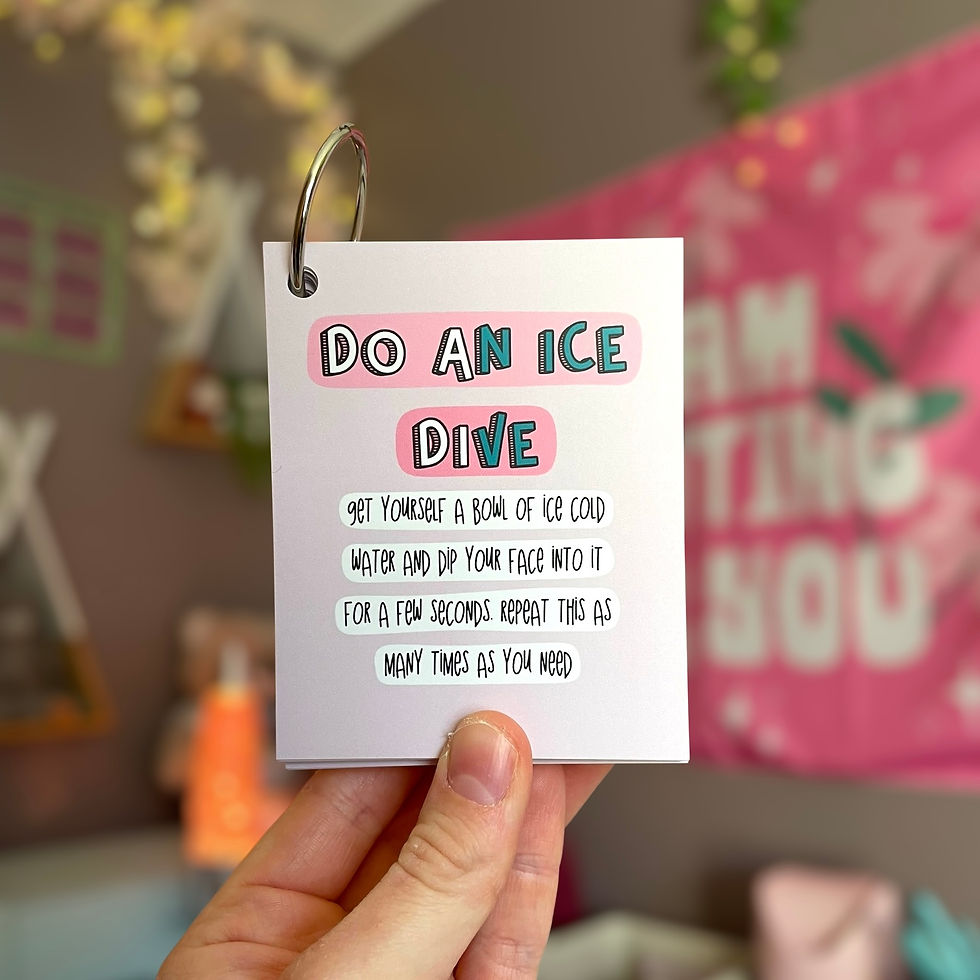 DO AN ICE
DIVE
GET YOURSELF A BOWL OF ICE COLD
WATER AND DIP YOUR FACE INTO IT
FOR A FEW SECONDS. REPEAT THIS AS
MANY TIMES AS YOU NEED
AM
YOU